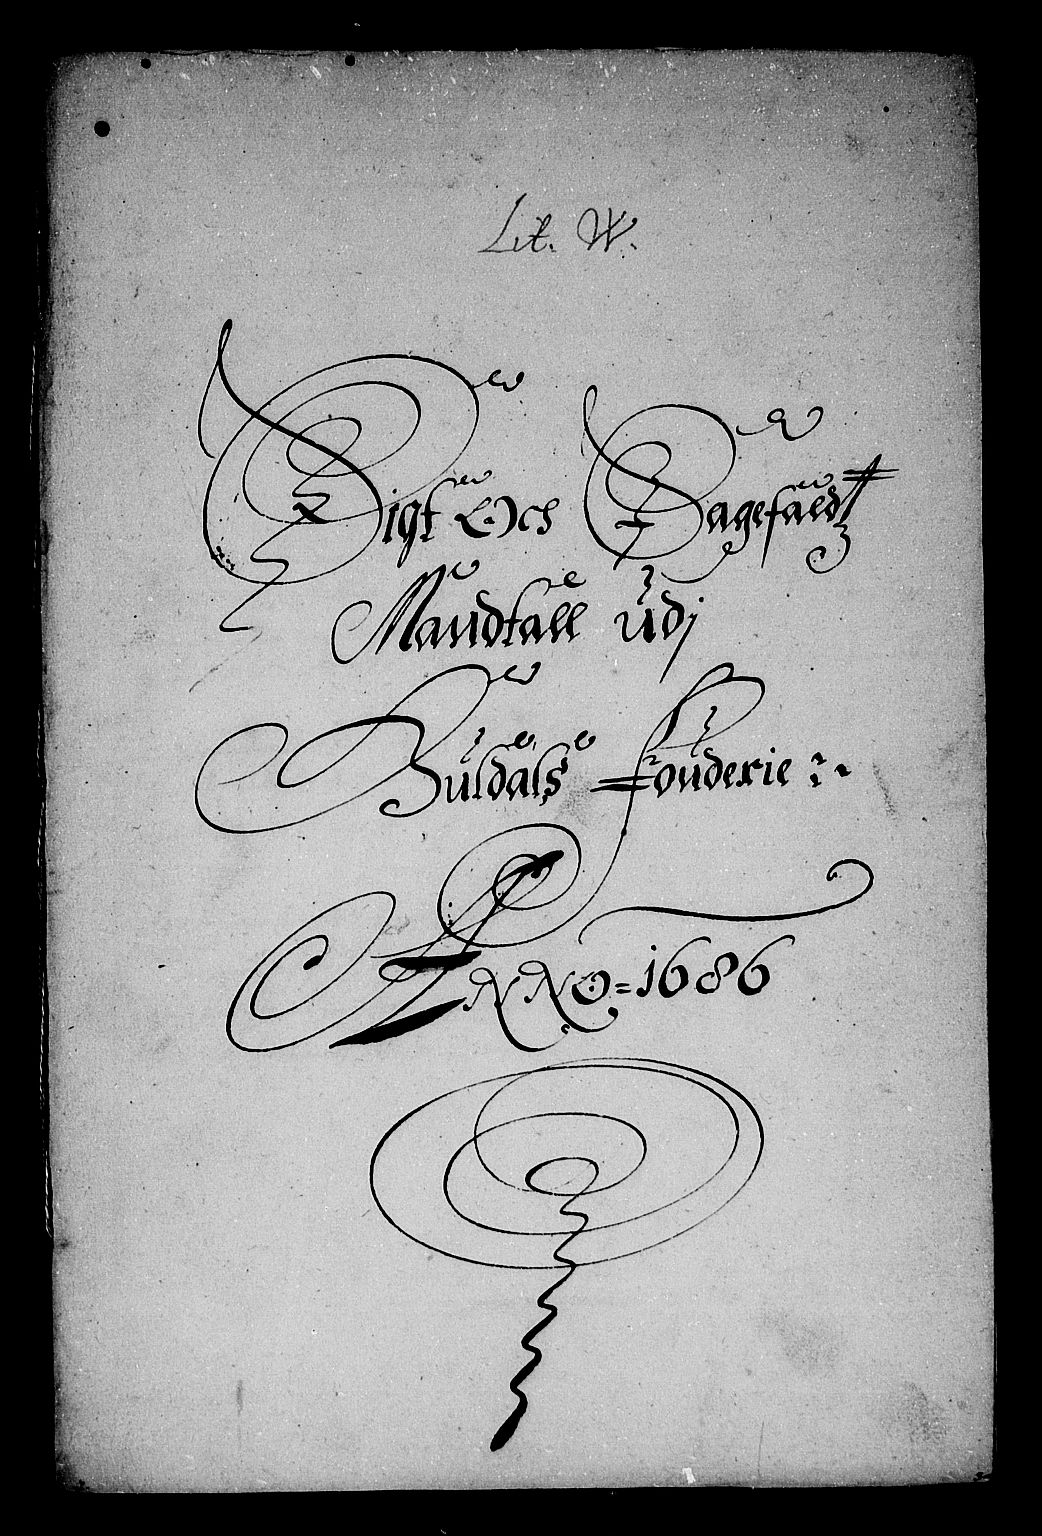 Lit. W.
Sigt Och Sagefald
Mandtall udj
Buldals Fouderie
ANNO = 1686